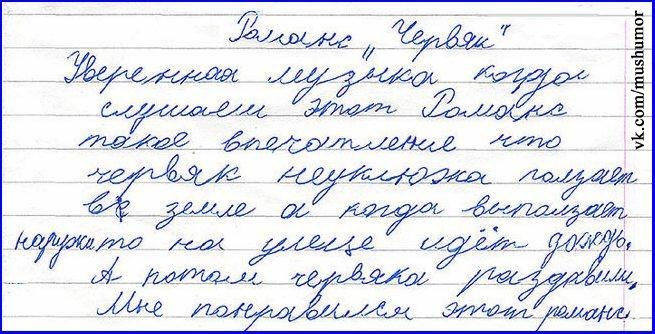 Романс „Червяк"
Уверенная музыка когда
слушаем этот Романс
такое впечатление что
червяк неуклюжа ползает
в земле а когда выползает
наружи то на улеце идёт дождь.
А потом червяка раздавили.
Мне понравился этот романс.
vk.com/mushumor